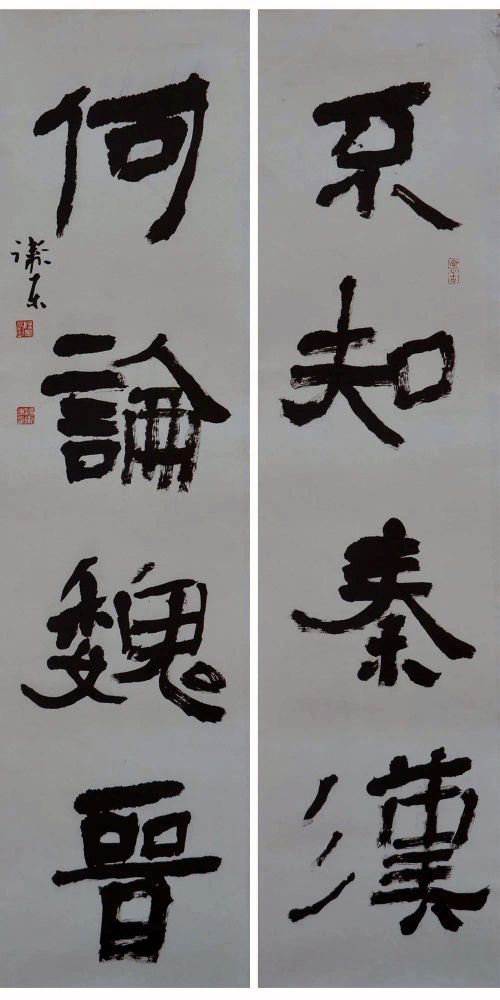 不知秦漢
何論魏晉